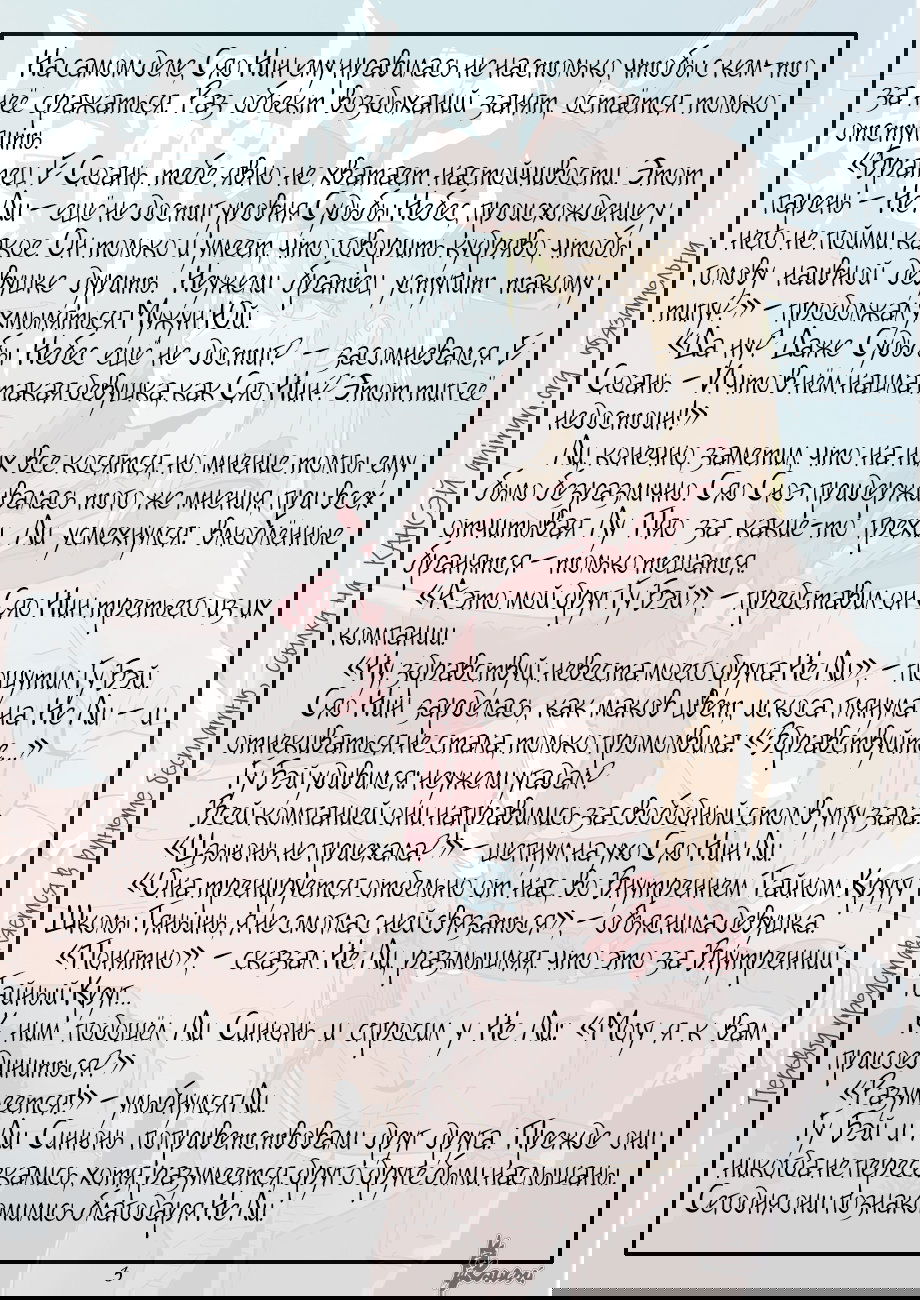 На самом деле, Сяо Нин ему нравилась не настолько, чтобы с кем-то
за неё сражаться. Раз объект воздыханий занят, остаётся только
отступить.
«Братец Ё Сюань, тебе явно не хватает настойчивости. Этот
парень – Не Ли – ещё не достиг уровня Судьбы Небес, происхождение у
него не пойми какое. Он только и умеет, что говорить кудряво, чтобы
голову наивной девушке дурить. Неужели братец уступит такому
типу?» – продолжал ухмыляться Мужун Юй.
«Да ну? Даже Судьбы Небес ещё не достиг? – засомневался Ё
Сюань. – И что в нём нашла такая девушка, как Сяо Нин? Этот тип её
недостоин!»
Ли, конечно, заметил, что на них все косятся, но мнение толпы ему
было безразлично. Сяо Сюэ придерживалась того же мнения, при всех
отчитывая Лу Пяо за какие-то грехи. Ли усмехнулся: влюблённые
бранятся – только тешатся.
«А это мой друг Гу Бэй», – представил он Сяо Нин третьего из их
компании.
«Ну, здравствуй, невеста моего друга Не Ли», – пошутил Гу Бэй.
Сяо Нин зарделась, как маков цвет, искоса глянула на Не Ли – и
отнекиваться не стала, только промолвила: «Здравствуйте...»
Гу Бэй удивился: неужели угадал?
Всей компанией они направились за свободный стол в углу зала.
«Цзыюнь не приехала?» – шепнул на ухо Сяо Нин Ли.
«Она тренируется отдельно от нас во Внутреннем Тайном Кругу
Школы Тяньинь, я не смогла с ней связаться», – объяснила девушка.
«Понятно», – сказал Не Ли, размышляя, что это за Внутренний
Тайный Круг...
К ним подошёл Ли Синюнь и спросил у Не Ли: «Могу я к вам
присоединиться?»
«Разумеется!» – улыбнулся Ли.
Гу Бэй и Ли Синюнь поприветствовали друг друга. Прежде они
никогда не пересекались, хотя, разумеется, друг о друге были наслышаны.
Сегодня они познакомились благодаря Не Ли.